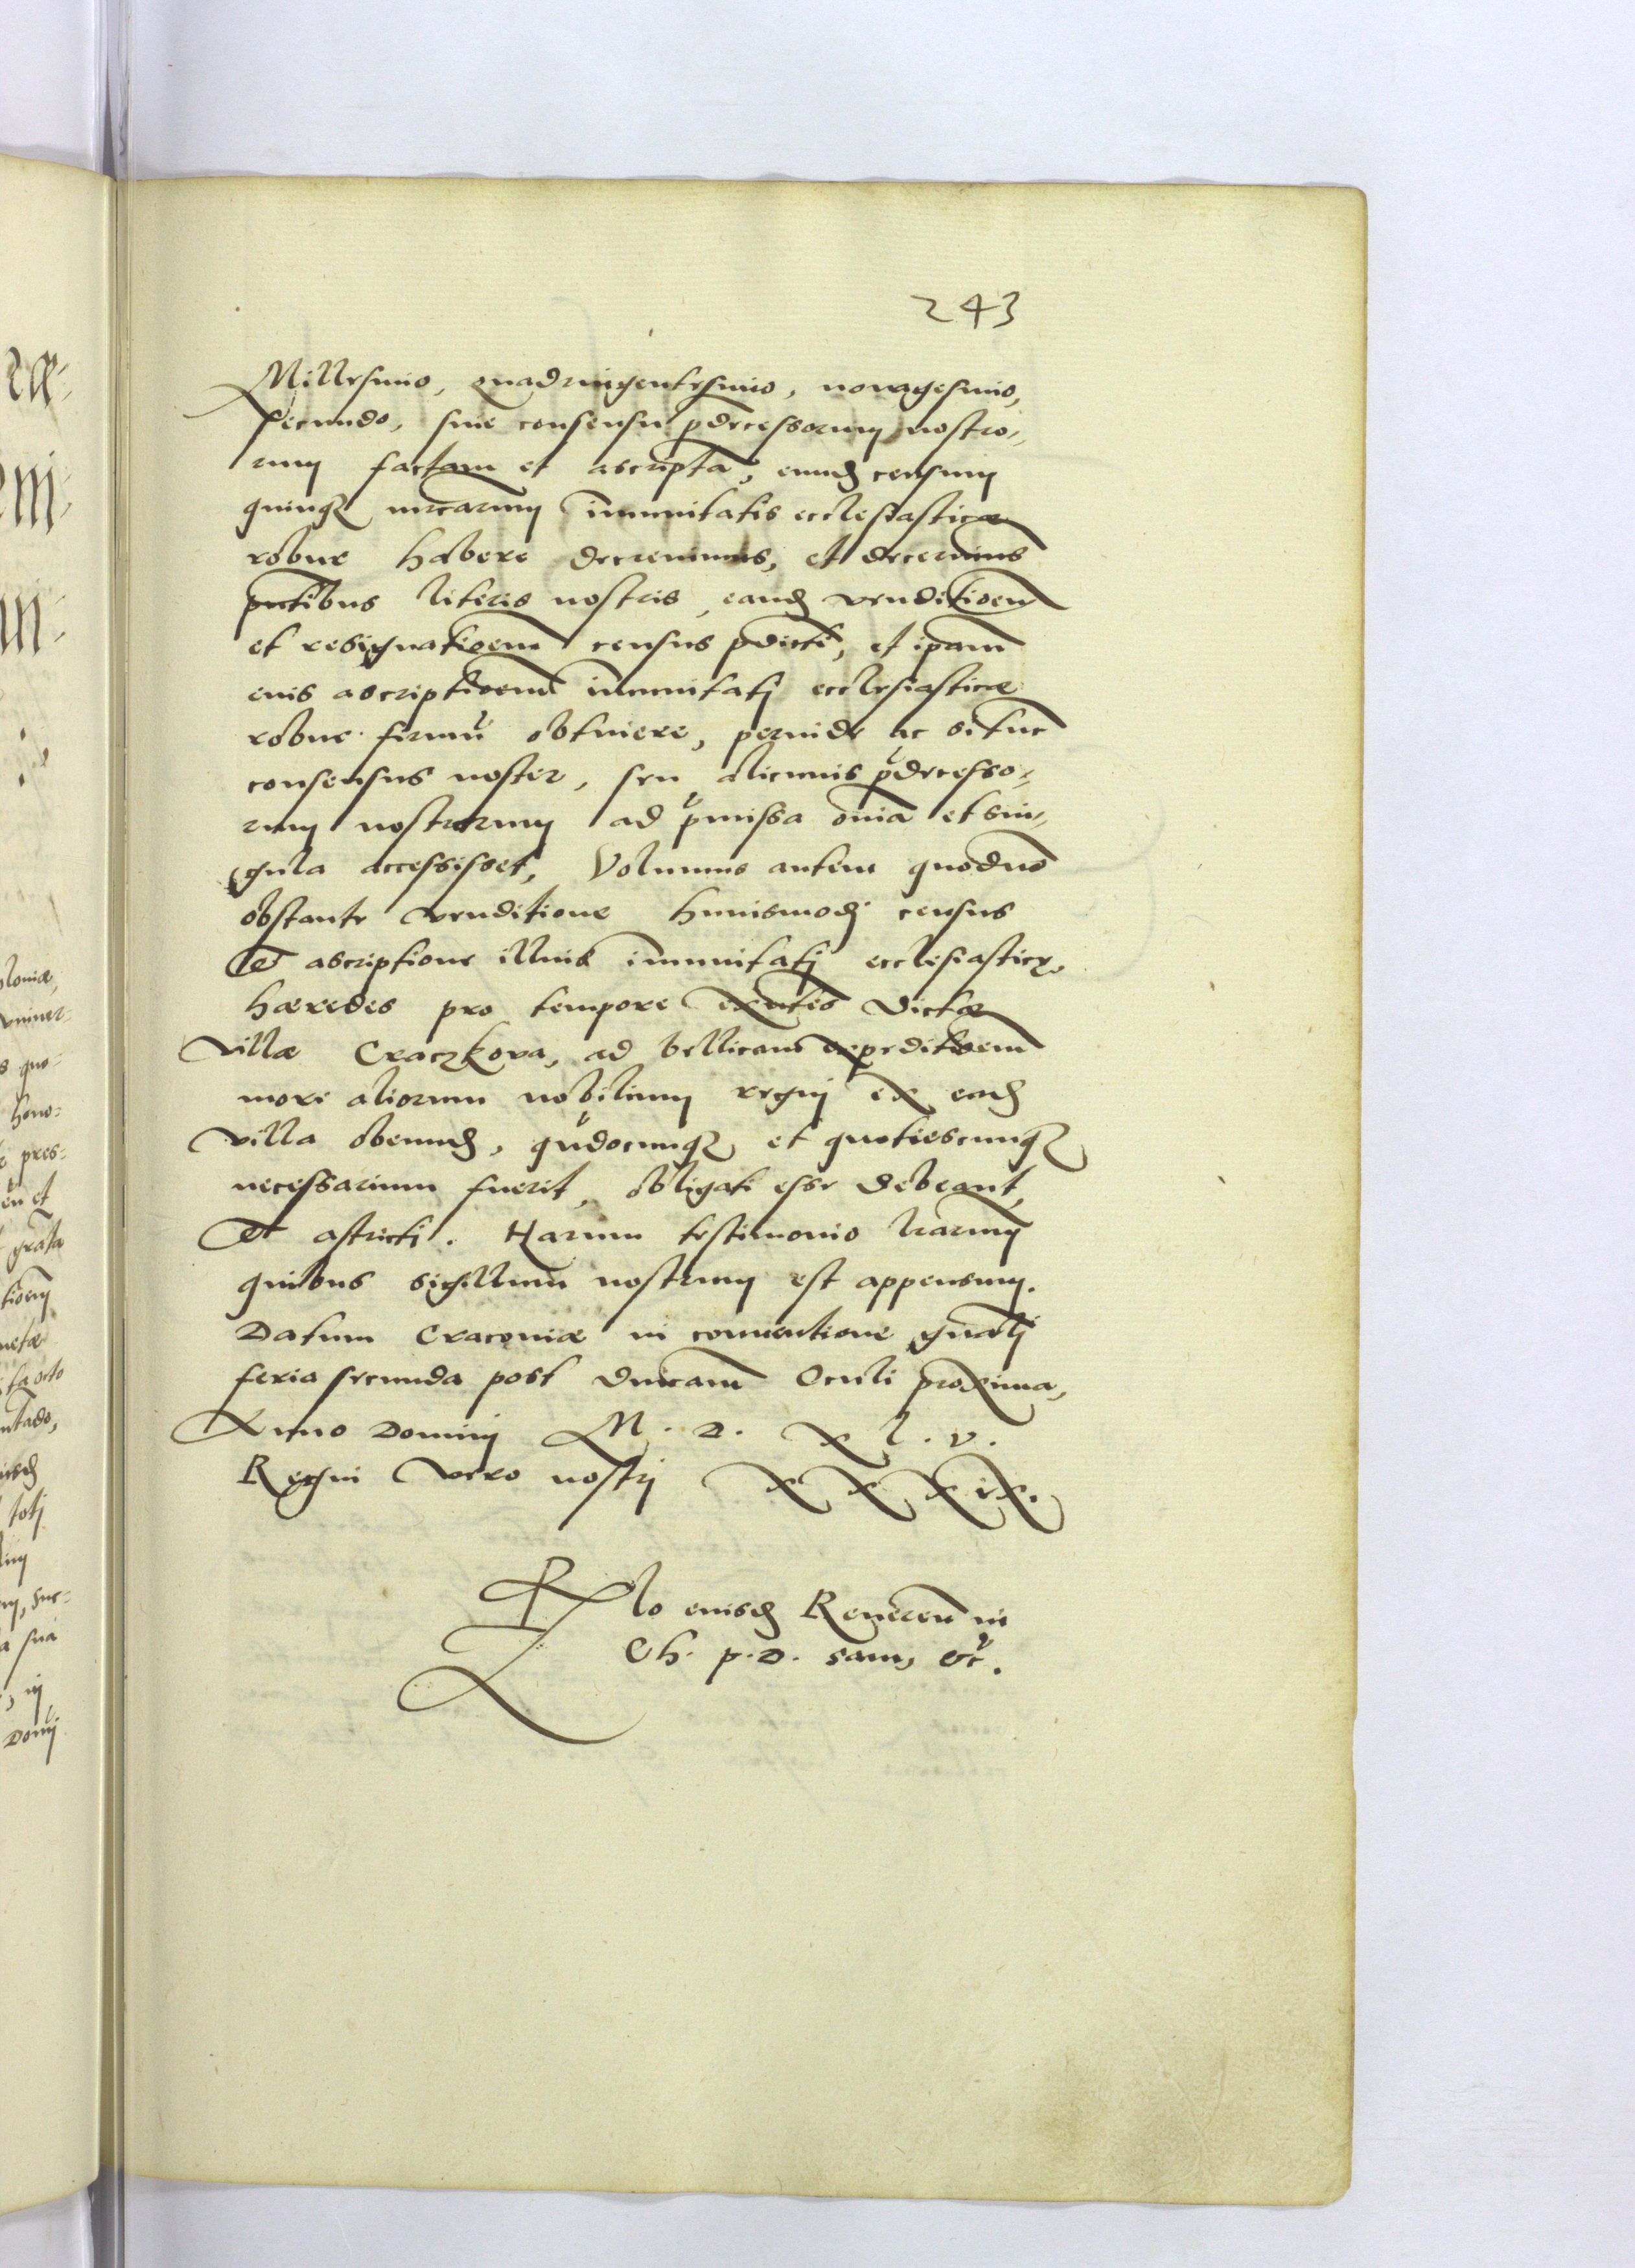 243
Millesimo, quadringentesimo, nonagesimo,
secundo, sine consensu pdecessorum nostro-
rum factam et ascriptā, eundē censum
quinqȝ mrcarum immunitatis ecclesiasticæ
robur habere decrevimus, et decernimus
pntibus literis nostris, eandē venditioem
et resignatioem census pdicti, et ipam
eius ascriptioem immunitatj ecclesiasticæ
robur firmū obtinere, perinde ac si tunc
consensus noster, seu alicuius pdecesso-
rum nostrorum ad pmissa omnia et sin-
gula accessisset, Volumus autem quod non
obstante venditione huiusmodi census
Et ascriptione illius immunitatj ecclesiasticę,
hæredes pro tempore exntes dictæ
villæ Craczkova, ad bellicam expeditioem
more aliorum nobilium regnj ex eadē
villa obeundē, qūdocunqȝ et quotiescunqȝ
necessarium fuerit, obligati esse debeant,
Et astricti. Harum testimonio lrarum
quibus sigillum nostrum est appensum.
Datum Cracoviæ in conventione gnalj
feria secunda post dnicam Oculi proxima,
Anno Dominj M. D. x l. v.
Regni vero nostrj X X X i X.
Rlo eiusdē Reveren in
Ch. p. D. Sam, &c.